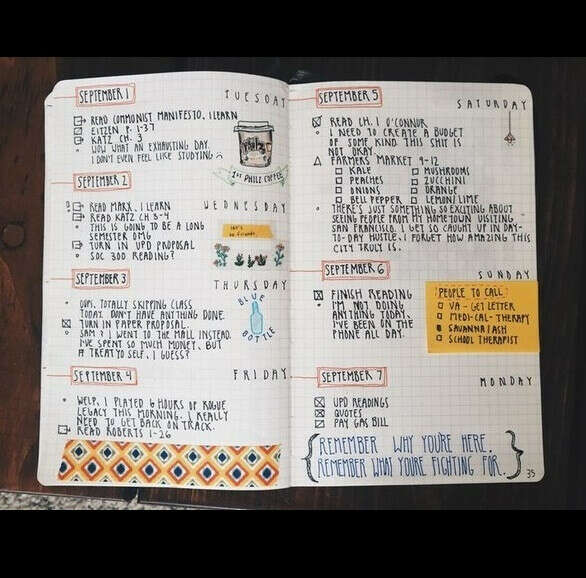 SEPTEMBER 1
TUESDAY
READ COMMUNIST MANIFESTO. ILEARN
EITZEN P. 1-37
KATZ CH. 3
WOW WHAT AN EXHAUSTING DAY.
I DON'T EVEN FEEL LIKE STUDYING
1ST PHILZ COFFEE
SEPTEMBER 2
WEDNESDAY
READ MARX. ILEARN
READ KATZ CH 3-4
THIS IS GOING TO BE A LONG
SEMESTER OMG
TURN IN UPD PROPOSAL
SOC 300 READING?
let's
be friends
SEPTEMBER 3
THURSDAY
OOPS. TOTALLY SKIPPING CLASS
TODAY. DON'T HAVE ANYTHING DONE.
TURN IN PAPER PROPOSAL.
5AM? I WENT TO THE MALL INSTEAD.
I'VE SPENT SO MUCH MONEY, BUT
# TREAT YO SELF, I GUESS?
BLUE
BOTTLE
SEPTEMBER 4
FRIDAY
WELP, I PLAYED 6 HOURS OF ROGUE
LEGACY THIS MORNING. I REALLY
NEED TO GET BACK ON TRACK.
READ ROBERTS 1-26
SEPTEMBER 5
SATURDAY
READ CH. 1 O'CONNOR
I NEED TO CREATE A BUDGET
OF SOME KIND THIS SHIT IS
NOT OKAY.
FARMERS MARKET 9-12
KALE MUSHROOMS
PEACHES ZUCCHINI
ONIONS ORANGE
BELL PEPPER LEMON/LIME
THERE'S JUST SOMETHING SO EXCITING ABOUT
SEEING PEOPLE FROM MY HOMETOWN VISITING
SAN FRANCISCO. I GET SO CAUGHT UP IN DAY-
TO-DAY HUSTLE. I FORGET HOW AMAZING THIS
CITY TRULY IS.
SEPTEMBER 6
SUNDAY
FINISH READING
I'M NOT DOING
ANYTHING TODAY.
I'VE BEEN ON THE
PHONE ALL DAY.
PEOPLE TO CALL:
VA - GET LETTER
MEDI-CAL-THERAPY
SAVANNA/ASH
SCHOOL THERAPIST
SEPTEMBER 7
MONDAY
UPD READINGS
QUOTES
PAY GAS BILL
REMEMBER WHY YOU'RE HERE.
REMEMBER WHAT YOU'RE FIGHTING FOR.
35